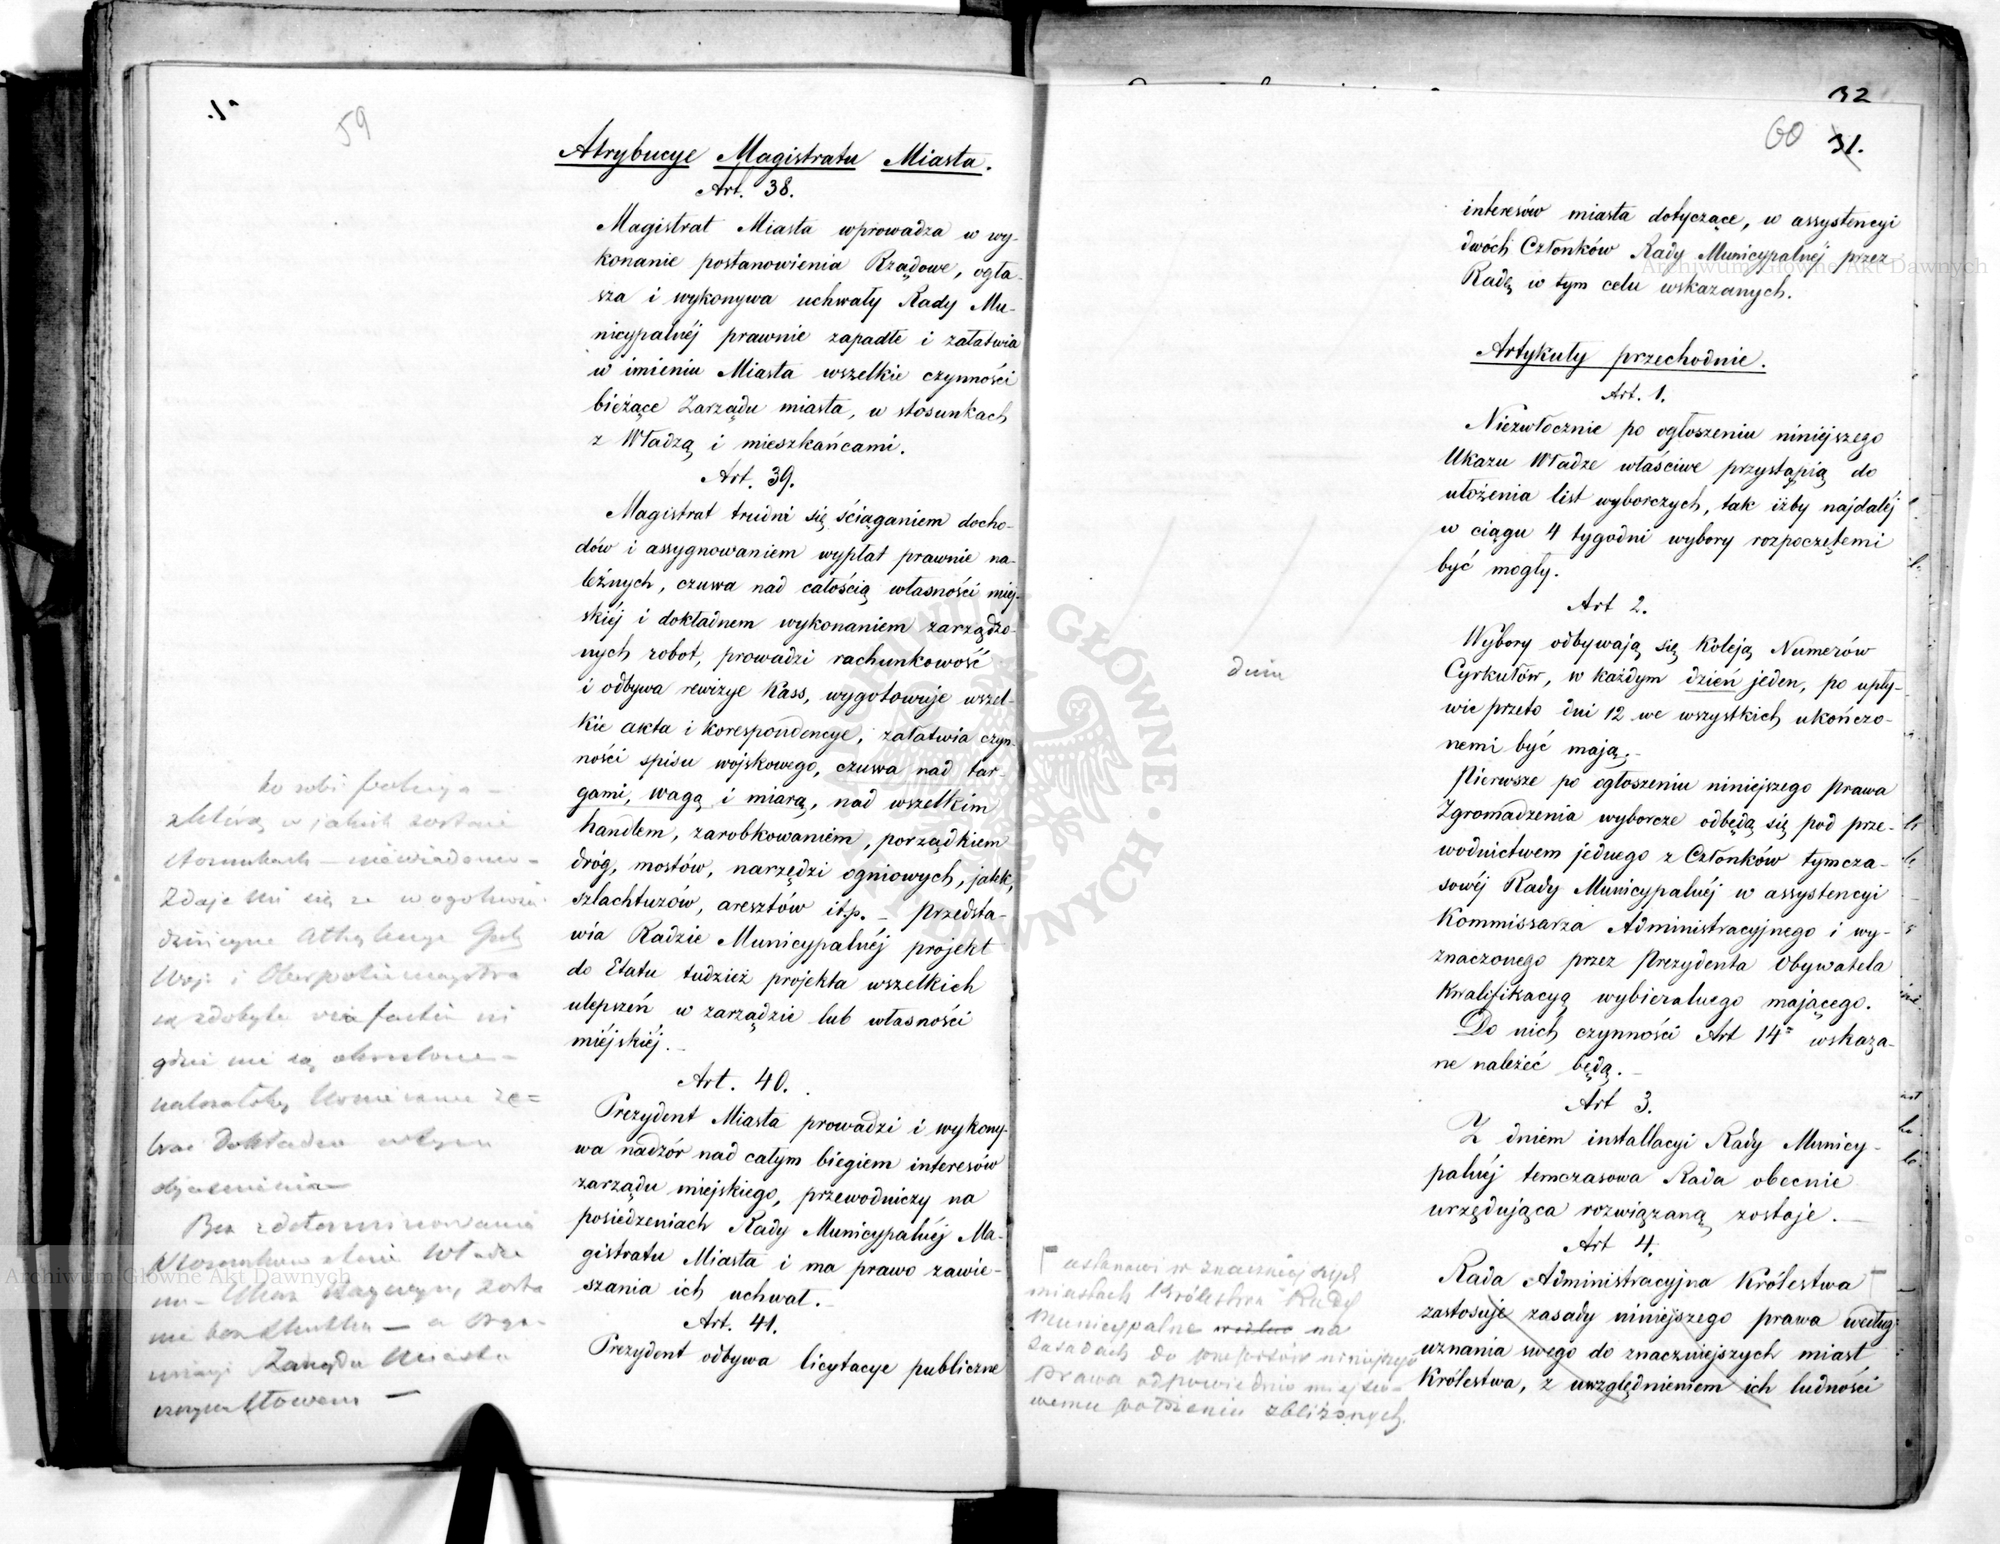 59
Atrybucye Magistratu Miasta.
Art. 38.
Magistrat Miasta wprowadza w wy-
konanie postanowienia Rządowe, ogła-
sza i wykonywa uchwały Rady Mu-
nicypalnéj prawnie zapadłe i załatwia
w imieniu Miasta wszelkie czynności
bieżące Zarządu miasta, w stosunkach
z Władzą i mieszkańcami.
Art. 39.
Magistrat trudni się ściąganiem docho-
dów i assygnowaniem wypłat prawnie na-
leżnych, czuwa nad całością własności miej-
skiéj i dokładnem wykonaniem zarządzo-
nych robot, prowadzi rachunkowość
i odbywa rewizye Kass, wygotowuje wszel-
kie akta i korespondencye, załatwia czyn-
ności spisu wojskowego, czuwa nad tar-
gami, wagą i miarą, nad wszelkim
handlem, zarobkowaniem, porządkiem
dróg, mostów, narzędzi ogniowych, jatek,
szlachtuzów, aresztów itp. – Przedsta-
wia Radzie Municypalnéj projekt
do Etatu tudzież projekta wszelkich
ulepszeń w zarządzie lub własności
miéjskiéj. –
Art. 40.
Prezydent Miasta prowadzi i wykony-
wa nadzór nad całym biegiem interesów
zarządu miejskiego, przewodniczy na
posiedzeniach Rady Municypalnéj Ma-
gistratu Miasta i ma prawo zawie-
szania ich uchwał. –
Art. 41.
Prezydent odbywa licytacye publiczne
co robi policya –
z którą w jakich zostanie
stosunkach – niewiadomo –
Zdaje mi się ze w ogolnosci
i Oberpolicmajstra
gdzie nie są okreslone –
objasnienia
Bez zdeterminowania
Zarządu Miasta
32
60 31.
interesów miasta dotyczące, w assystencyi
dwóch Członków Rady Municypalnéj przez
Radę w tym celu wskazanych.
Artykuły przechodnie.
Art. 1.
Niezwłocznie po ogłoszeniu niniejszego
Ukazu Władze właściwe przystąpią do
ułożenia list wyborczych, tak iżby najdaléj
w ciągu 4 tygodni wybory rozpoczętemi
być mogły.
Art 2.
Wybory odbywają się Koleją Numerów
Cyrkułów, w każdym dzień jeden, po upły-
wie przeto dni 12 we wszystkich ukończo-
nemi być mają. –
Pierwsze po ogłoszeniu niniejszego prawa
Zgromadzenia wyborcze odbędą się pod prze-
wodnictwem jednego z Członków tymcza-
sowéj Rady Municypalnéj w assystencyi
Kommissarza Administracyjnego i wy-
znaczonego przez Prezydenta Obywatela
Kwalifikacyą wybieralnego mającego.
Do nich czynności Art 14 wskaza-
ne należéć będą. –
Art 3.
Z dniem installacyi Rady Municy-
palnéj temczasowa Rada obecnie
urzędująca rozwiązaną zostaje. –
Art 4.
Rada Administracyjna Królestwa
zastosuje zasady niniejszego prawa według
uznania swego do znaczniejszych miast
Królestwa, z uwzględnieniem ich ludności
dniu
ustanowi w znaczniejszych
miastach Królestwa Rady
Municypalne wedlug na
zasadach do przepisów niniejszego
prawa odpowiednio miejsco-
wemu położeniu zbliżonych.
Archiwum Główne Akt Dawnych
Archiwum Główne Akt Dawnych
ARCHIWUM GŁÓWNE AKT DAWNYCH